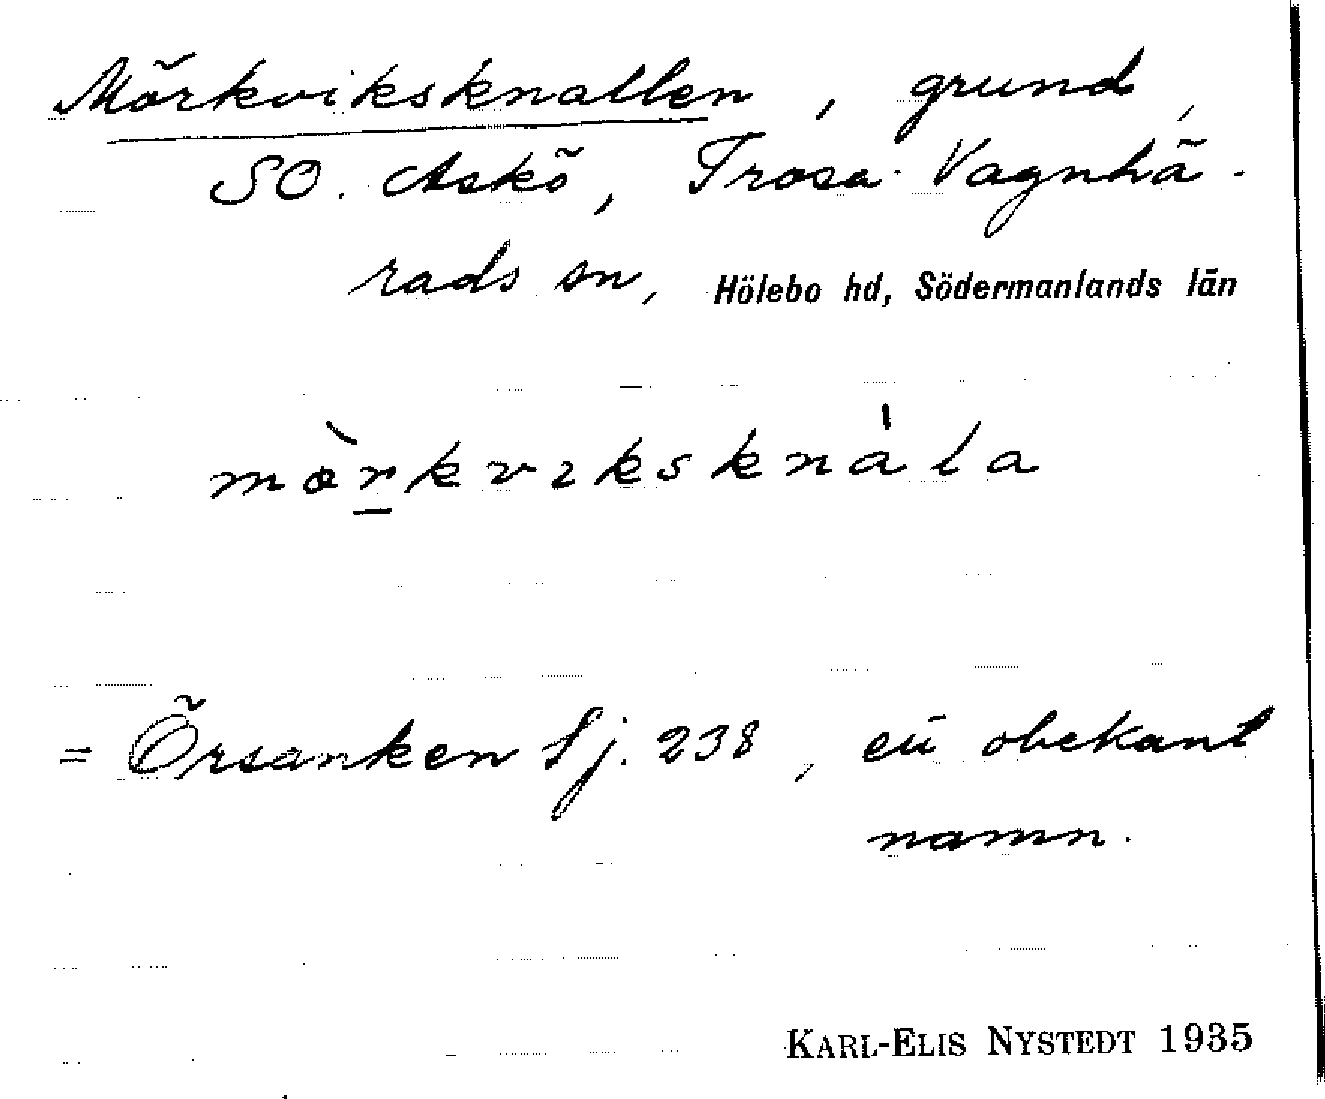 Mörkviksknallen, grund,
SO. Askö, Trosa-Vagnhä-
rads sn, Hölebo hd, Södermanlands län
mòrkvıksknála
= Örsanken Sj. 238, en obekant
namn.
KARL-ELIS NYSTEDT 1935